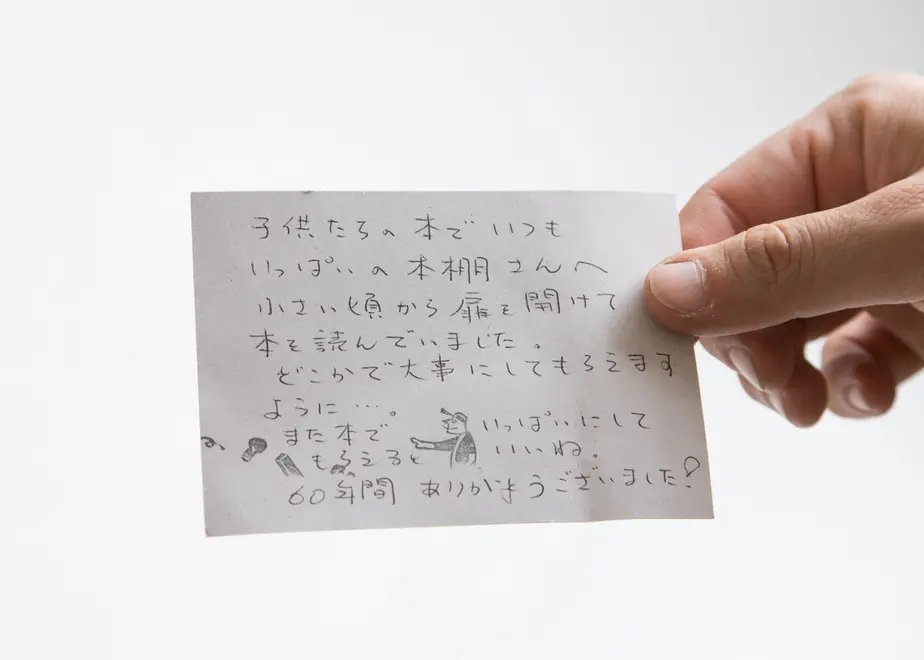 子供たちの本でいつも
いっぱいの本棚さんへ
小さい頃から扉を開けて
本を読んでいました。
どこかで大事にしてもらえます
ように…。
また本で いっぱいにして
もらえると いいね。
60年間 ありがとうございました!